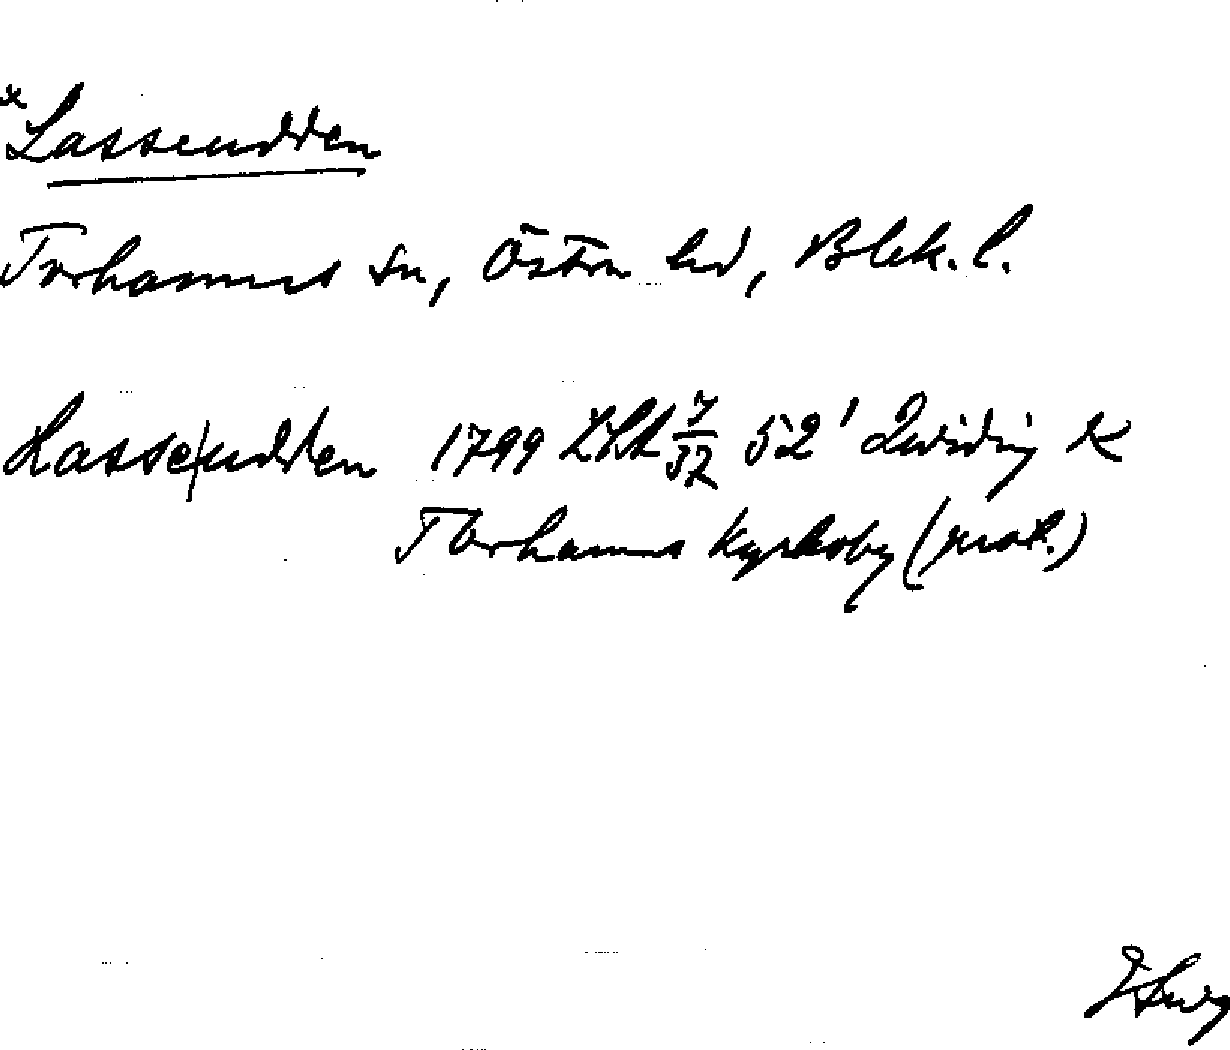 *Lasseudden
Torhamns sn, Östra hd, Blek. l.
Lasse|udden 1799 LSA 7/52 52' K
Torhamns Kyrkoby (prot.)